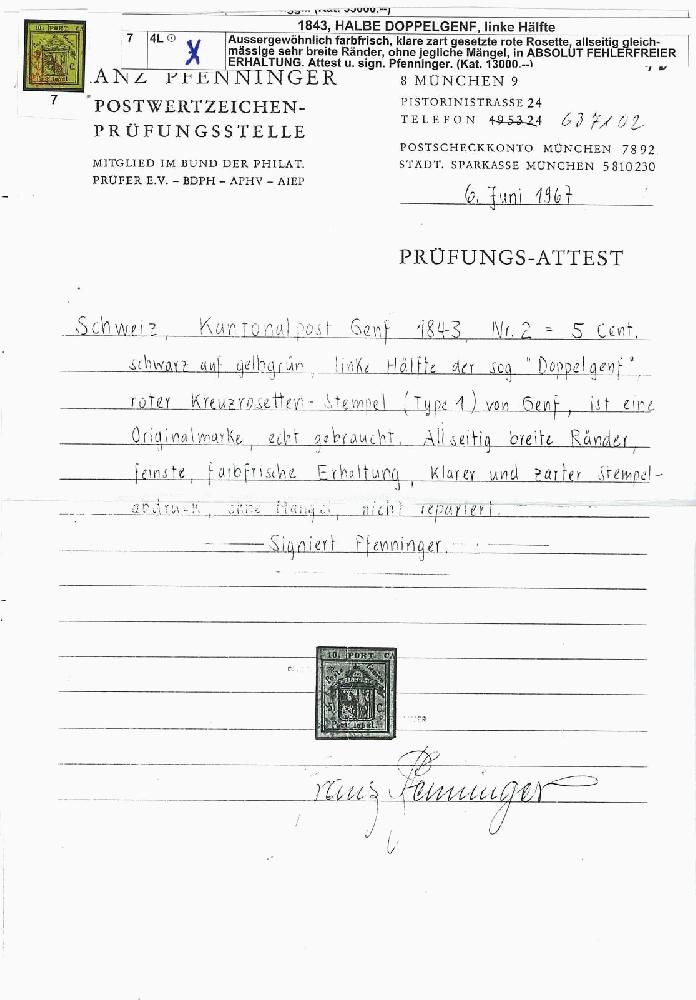 1843, HALBE DOPPELGENF, linke Hälfte
7 4L X
Aussergewöhnlich farbfrisch, klare zart gesetzte rote Rosette, allseitig gleich-
mässige sehr breite Ränder, ohne jegliche Mängel, in ABSOLUT FEHLERFREIER
ERHALTUNG. Attest u. sign. Pfenninger. (Kat. 13000.--)
7
ANZ PFENNINGER
POSTWERTZEICHEN-
PRÜFUNGSSTELLE
MITGLIED IM BUND DER PHILAT.
PRÜFER E.V. – BDPH – APHV – AIEP
8 MÜNCHEN 9
PISTORINISTRASSE 24
TELEFON 495324 637102
POSTSCHECKKONTO MÜNCHEN 7892
STÄDT. SPARKASSE MÜNCHEN 5810230
6. Juni 1967
PRÜFUNGS-ATTEST
Schweiz, Kantonalpost Genf 1843, Nr. 2 = 5 Cent.
schwarz auf gelbgrün, linke Hälfte der sog "Doppelgenf",
roter Kreuzrosetten-Stempel (Type 1) von Genf, ist eine
Originalmarke, echt gebraucht. Allseitig breite Ränder,
feinste, farbfrische Erhaltung, klarer und zarter Stempel-
abdruck, ohne Mängel, nicht repariert.
Signiert Pfenninger.
10. PORT CA
5 C
Franz Pfenninger